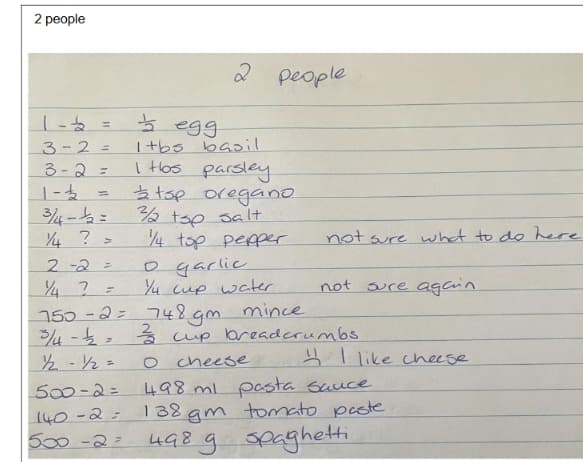 2 people
2 people
1 - ½ = ½ egg
3 - 2 = 1 tbs basil
3 - 2 = 1 tbs parsley
1 - ½ = ½ tsp oregano
¾ - ½ = 3/2 tsp salt
¼ ? = ¼ tsp pepper not sure what to do here
2 - 2 = 0 garlic
¼ ? = ¼ cup water not sure again
750 - 2 = 748 gm mince
¾ - ½ = 2/2 cup breadcrumbs
½ - ½ = 0 cheese I like cheese
500 - 2 = 498 ml pasta sauce
140 - 2 = 138 gm tomato paste
500 - 2 = 498 g spaghetti